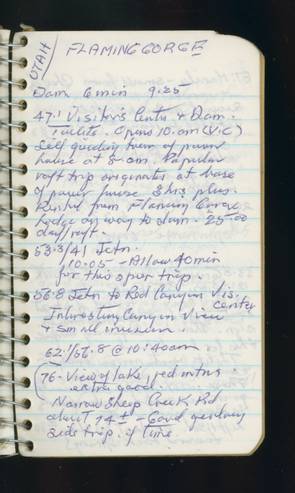 UTAH
FLAMING GORGE
Dam 6 min 9:25
47.1 Visitor's Centre & Dam.
Toilets. Opens 10.am (V.C)
Self guiding tour of power
house at 8.am. Popular
raft trip originates at base
of power house 3 hrs plus.
Rented from Flaming Gorge
Lodge on way to dam. 25.00
day/raft.
53.3/41 Jctn.
10:05 - Allow 40 min
for this spur trip.
56.8 Jctn to Red Canyon Vis.
center
Interesting Canyon View
& small museum
62.1/56.8 @ 10:40am
76 - View of lake, red mtns.
extra good.
Narrow Sheep Creek Rd
about 14± - Good geology
side trip. if time